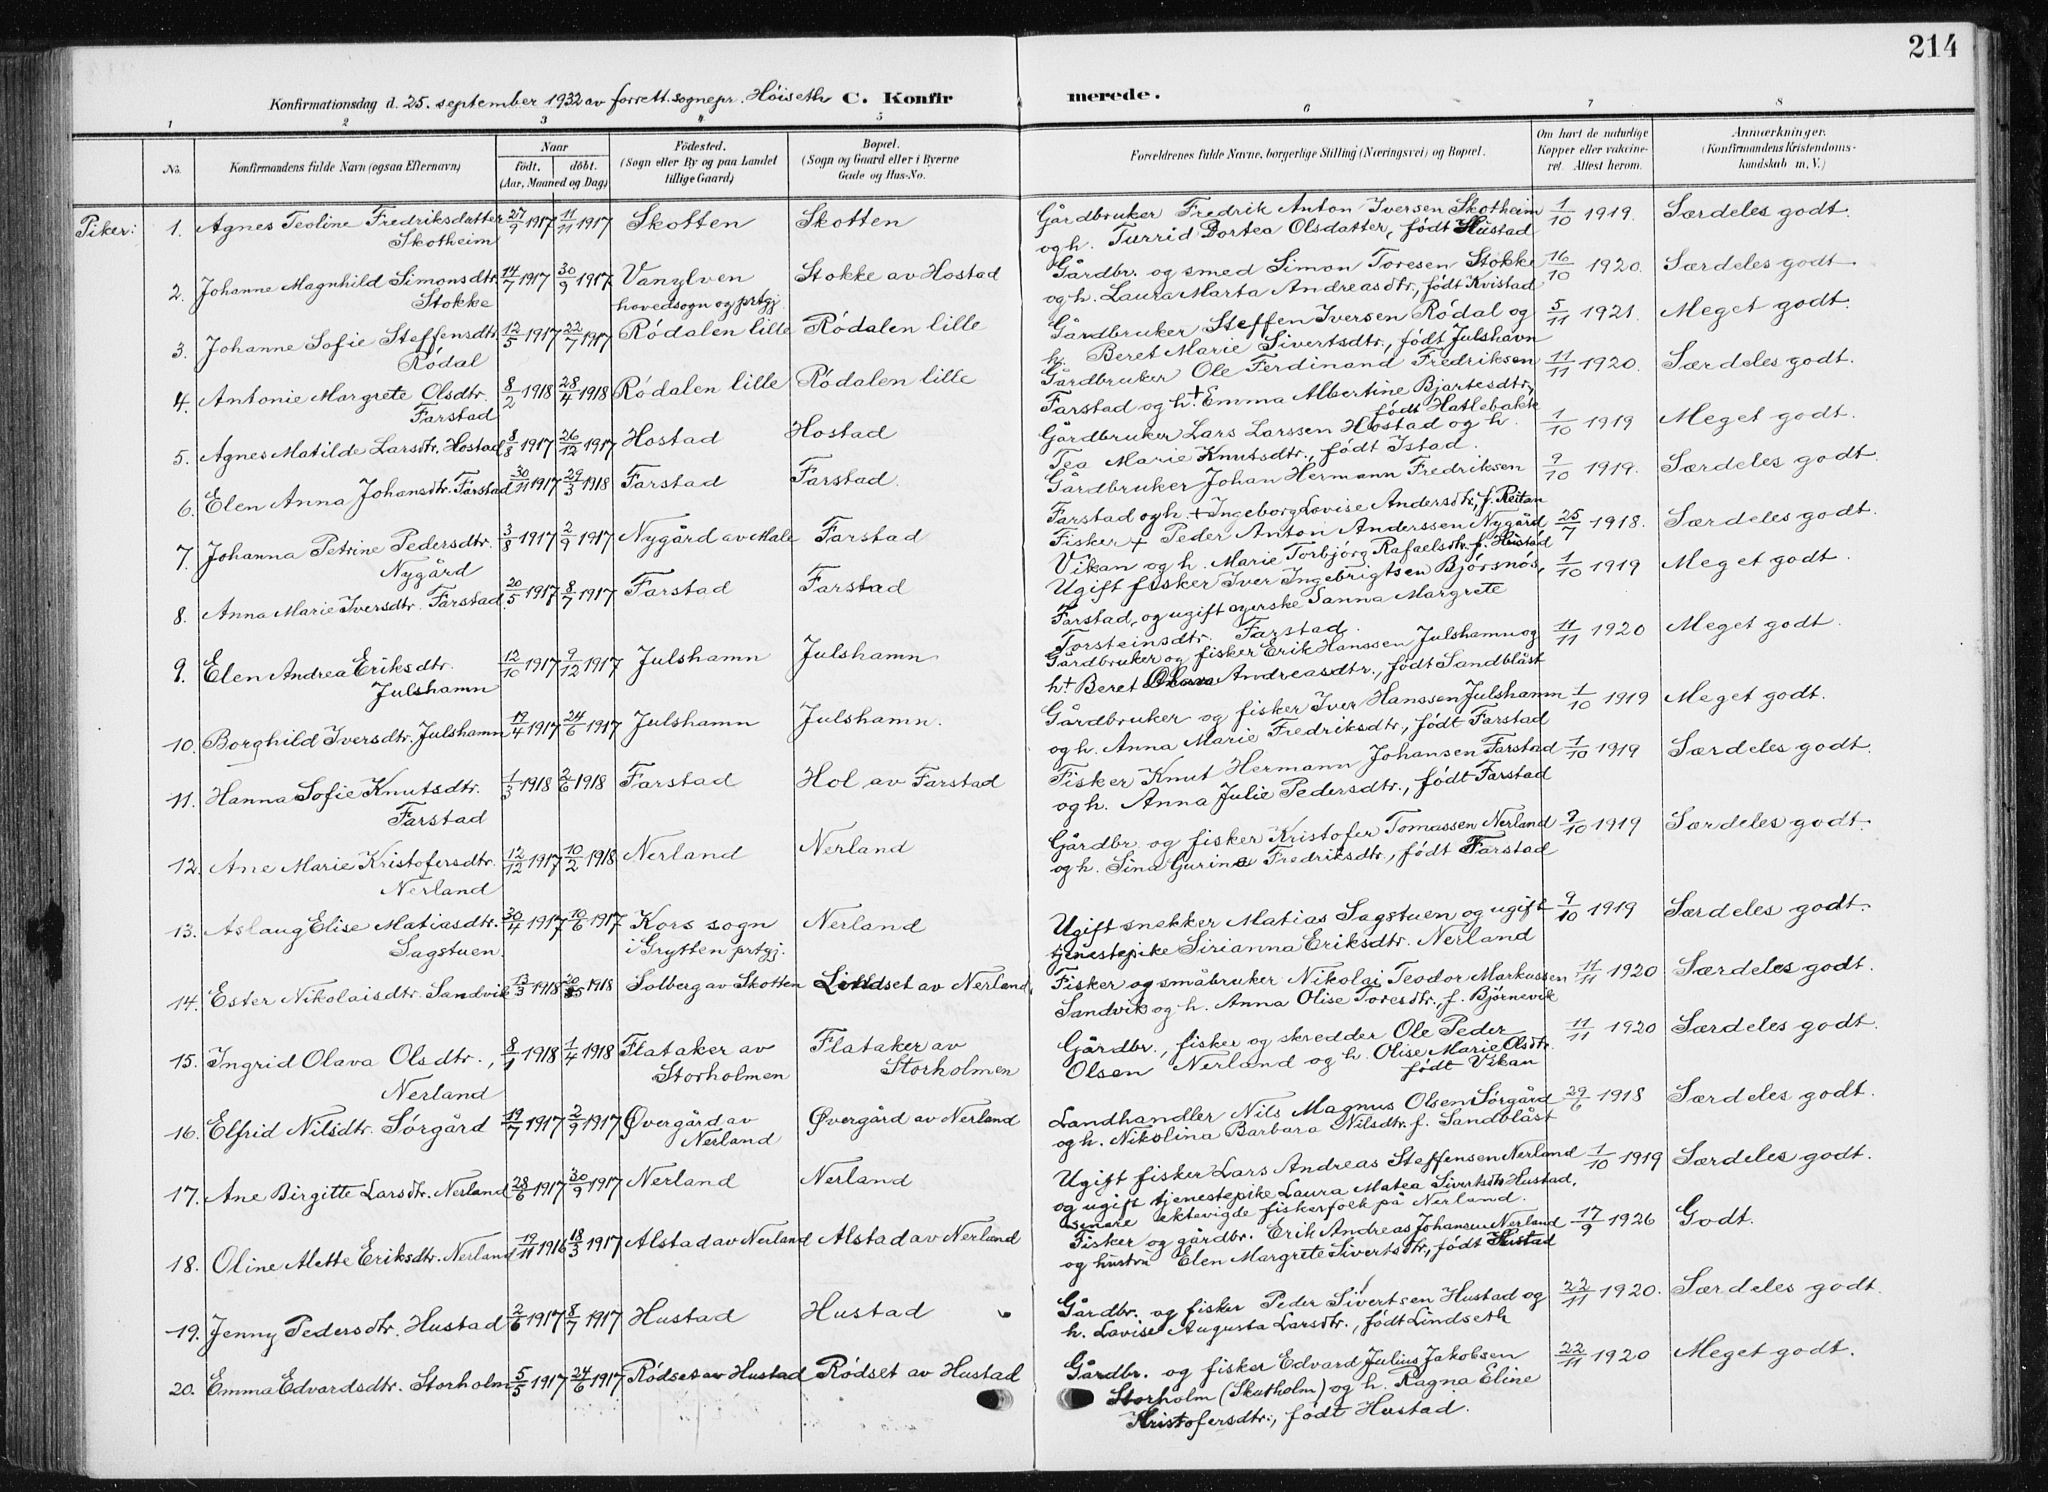 214
Konfirmationsdag d. 25. september 1932 av forrett. sognepr. Höiseth C. Konfirmerede.
1 2 3 4 5 6 7 8
No. Konfirmandens fulde Navn (ogsaa Efternavn) Naar født, døbt. (Aar, Maaned og Dag) Fødested. (Sogn eller By og paa Landet tillige Gaard) Bopæl. (Sogn og Gaard eller i Byerne Gade og Hus-No. Forældrenes fulde Navne, borgerlige Stilling (Næringsvei) og Bopæl. Om havt de naturlige Kopper eller vakcineret. Attest herom. Anmærkninger. (Konfirmandens Kristendomskundskab m. V.)
Piker: 1. Agnes Teoline Fredriksdatter Skotheim 27/9 1917 11/11 1917 Skotten Skotten Gårdbruker Fredrik Anton Iversen Skotheim og h. Turrid Dortea Olsdatter, født Hustad 1/10 1919. Særdeles godt.
2. Johanne Magnhild Simonsdtr. Stokke 14/7 1917 30/9 1917 Vanylven hovedsogn og prtgj Stokke av Hostad Gårdbr. og smed Simon Toresen Stokke og h. Laura Marta Andreasdtr., født Kvistad 16/10 1920. Særdeles godt.
3. Johanne Sofie Steffensdtr. Rödal 12/5 1917 22/7 1917 Rödalen lille Rödalen lille Gårdbruker Steffen Iversen Rödal og h. Beret Marie Sivertsdtr., født Julshavn 5/11 1921. Meget godt.
4. Antonie Margrete Olsdtr. Farstad 8/2 1918 28/4 1918 Rödalen lille Rödalen lille Gårdbruker Ole Ferdinand Fredriksen Farstad og h.+ Emma Albertine Bjartesdtr., født Hatlebakk 11/11 1920. Særdeles godt.
5. Agnes Matilde Larsdtr. Hostad 8/8 1917 26/12 1917 Hostad Hostad Gårdbruker Lars Larssen Hostad og h. Tea Marie Knutsdtr., født Istad. 1/10 1919 Meget godt.
6. Elen Anna Johansdtr. Farstad 30/11 1917 29/3 1918 Farstad Farstad. Gårdbruker Johan Hermann Fredriksen Farstad og h. + Ingeborg Lovise Andersdtr., f. Reitan 9/10 1919. Særdeles godt.
7. Johanna Petrine Pedersdtr. Nygård 3/8 1917 2/9 1917 Nygård av Male Farstad Fisker + Peder Anton Anderssen Nygård Vikan og h. Marie Torbjörg Rafaelsdtr. f. Hustad 25/7 1918. Særdeles godt.
8. Anna Marie Iversdtr. Farstad 20/5 1917 8/7 1917 Farstad Farstad Ugift fisker Iver Ingebrigtsen Björsnös, Farstad, og ugift syerske Sanna Margrete Torsteinsdtr. Farstad. 1/10 1919 Meget godt.
9. Elen Andrea Eriksdtr. Julshamn 12/10 1917 9/12 1917 Julshamn Julshamn Gårdbruker og fisker Erik Hanssen Julshamn og h+ Beret Olava Andreasdtr., født Sandblåst 11/11 1920 Meget godt.
10. Borghild Iversdtr. Julshamn 19/4 1917 24/6 1917 Julshamn Julshamn. Gårdbruker og fisker Iver Hanssen Julshamn og h. Anna Marie Fredriksdtr., født Farstad 1/10 1919 Meget godt.
11. Hanna Sofie Knutsdtr. Farstad 1/3 1918 2/6 1918 Farstad Hol av Farstad Fisker Knut Hermann Johansen Farstad og h. Anna Julie Pedersdtr., født Farstad 1/10 1919 Særdeles godt.
12. Ane Marie Kristofersdtr. Nerland 12/12 1917 10/2 1918 Nerland Nerland Gårdbr. og fisker Kristofer Tomassen Nerland og h. Sina Gurine Fredriksdtr., født Farstad 9/10 1919 Særdeles godt.
13. Aslaug Elise Matiasdtr. Sagstuen. 30/4 1917 10/6 1917 Kors sogn i Grytten prtgj. Nerland Ugift snekker Matias Sagstuen og ugift tjenestepike Sirianna Eriksdtr. Nerland 9/10 1919 Særdeles godt.
14. Ester Nikolaisdtr. Sandvik 13/3 1918 20/5 1918 Solberg av Skotten Lindset av Nerland, Fisker og småbruker Nikolai Teodor Markussen Sandvik og h. Anna Olise Toresdtr., f. Björnevik 11/11 1920 Særdeles godt.
15. Ingrid Olava Olsdtr., Nerland 8/1 1918 1/4 1918 Flataker av Storholmen Flataker av Storholmen Gårdbr., fisker og skredder Ole Peder Olsen Nerland og h. Olise Marie Olsdtr. født Vikan 11/11 1920 Særdeles godt.
16. Elfrid Nilsdtr. Sörgård 19/7 1917 2/9 1917 Øvergård av Nerland Øvergård av Nerland Landhandler Nils Magnus Olsen Sörgård og h. Nikolina Barbara Nilsdtr. f. Sandblåst 29/6 1918 Særdeles godt.
17. Ane Birgitte Larsdtr. Nerland 28/6 1917 30/9 1917 Nerland Nerland Ugift fisker Lars Andreas Steffensen Nerland og ugift tjenestepike Laura Matea Sivertsdtr Hustad, senere ektevigde fiskerfolk på Nerland. 1/10 1919 Særdeles godt.
18. Oline Alette Eriksdtr. Nerland 19/11 1916 18/3 1917 Alstad av Nerland Alstad av Nerland Fisker og gårdbr. Erik Andreas Johansen Nerland og hustru Elen Margrete Sivertsdtr., født Hustad 17/9 1926 Godt.
19. Jenny Pedersdtr. Hustad 2/6 1917 8/7 1917 Hustad Hustad Gårdbr. og fisker Peder Sivertsen Hustad og h. Lovise Augusta Larsdtr., født Lindseth 22/11 1920. Særdeles godt.
20. Emma Edvardsdtr. Storholm 5/5 1917 24/6 1917 Rödset av Hustad Rödset av Hustad Gårdbr. og fisker Edvard Julius Jakobsen Storholm (Skutholm) og h. Ragna Eline Kristofersdtr., født Hustad. 22/11 1920 Meget godt.